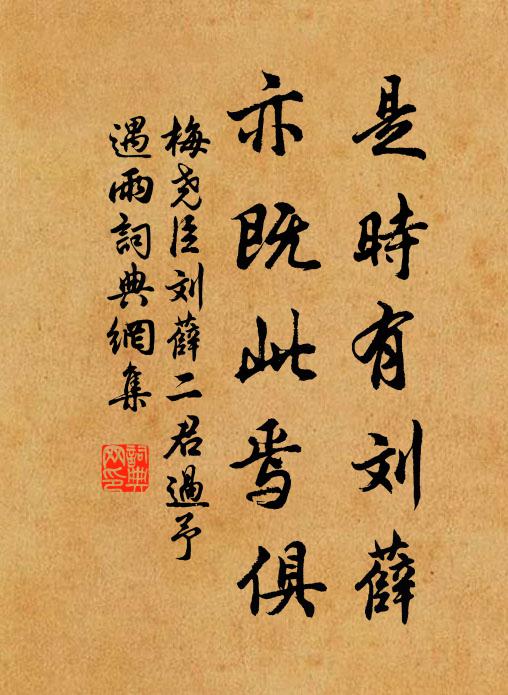 是時有刘薛
亦既此焉俱
梅尧臣刘薛二君過予
遇雨詞典網集
詞典
网印